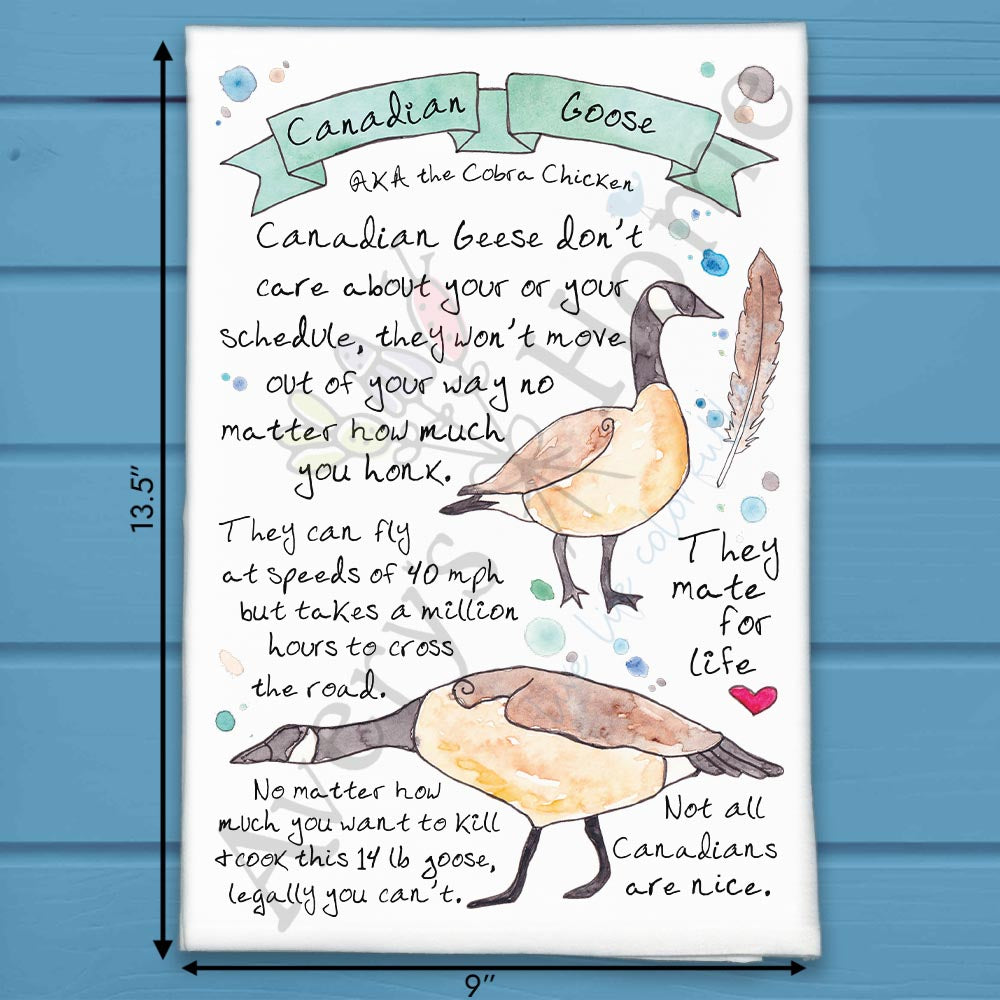 Canadian Goose
AKA the Cobra Chicken
Canadian Geese don't
care about your or your
schedule, they won't move
out of your way no
matter how much
you honk.
They can fly
at speeds of 40 mph
but takes a million
hours to cross
the road.
They
mate
for
life
No matter how
much you want to kill
+cook this 14 lb goose,
legally you can't.
Not all
Canadians
are nice.
13.5"
9"
Avery's Home
live life colorfully